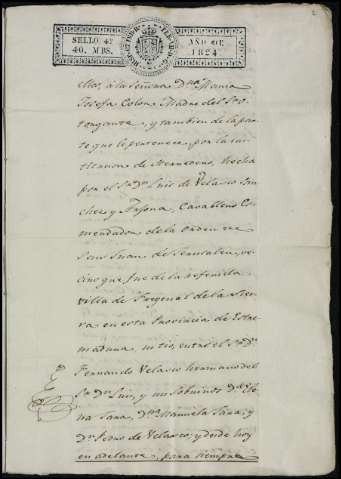 2
SELLO 4º
40. MRS.
AÑO DE
1824
ellos, a la Señora Dª Maria
Josefa Colon Madre del
y tambien de la par
te que le pertenece, por la ins
titucion de herederos, hecha
por el Sr. Dn. Luis de Velasco San
chez y Caballero Co
mendador de la orden de
San Juan de Jerusalen, ve
cino que fue de la referida
Villa de Fregenal de la Sier
ra en esta Provincia de Estre
madura, mi tio, entre el Sr. Dn.
Fernando Velasco hermano del
Sr. Dn. Luis, y sus Sobrinos Dª
Dª Manuela y
Dn. de Velasco; y desde hoy
en adelante, para siempre